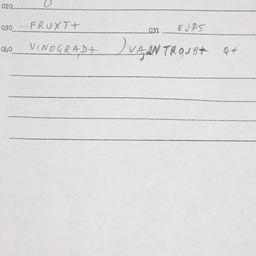 020
030 FRUXT+ 032 EJPS
040 VINOGRAD+ Q+